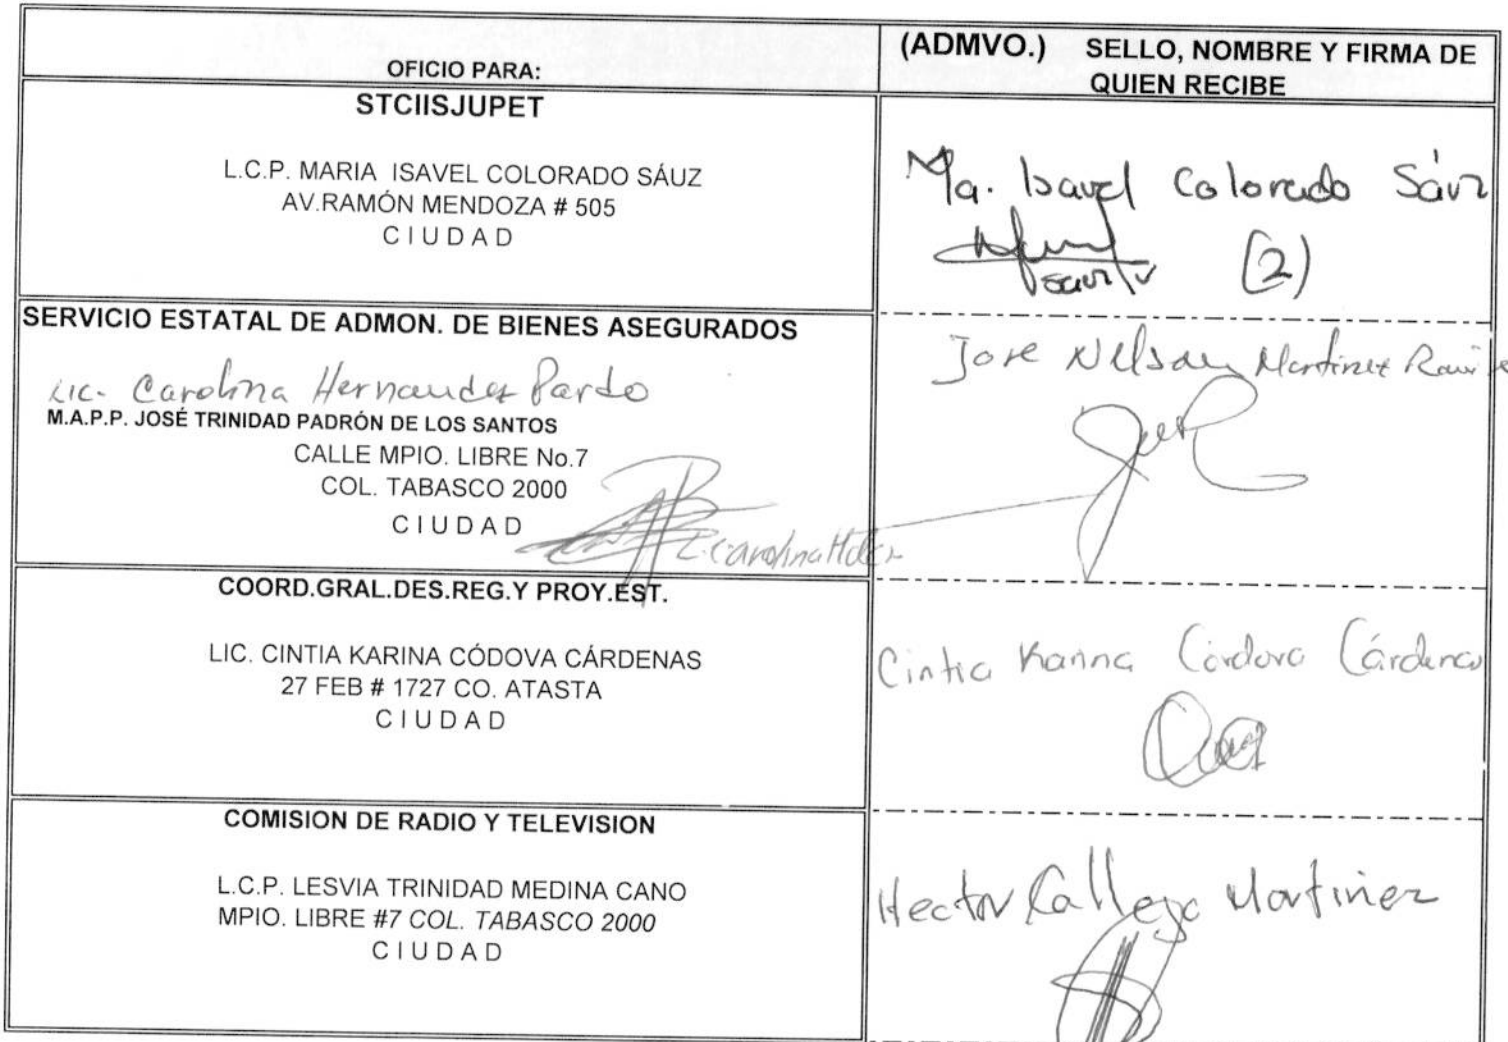 OFICIO PARA:
(ADMVO.) SELLO, NOMBRE Y FIRMA DE
QUIEN RECIBE
STCIISJUPET
L.C.P. MARIA ISAVEL COLORADO SÁUZ
AV.RAMÓN MENDOZA # 505
CIUDAD
Ma. Isavel Colorado Sáuz
(2)
SERVICIO ESTATAL DE ADMON. DE BIENES ASEGURADOS
Lic. Carolina Hernandez Pardo
M.A.P.P. JOSÉ TRINIDAD PADRÓN DE LOS SANTOS
CALLE MPIO. LIBRE No.7
COL. TABASCO 2000
CIUDAD
Jose Nelson Martinez
COORD.GRAL.DES.REG.Y PROY.EST.
LIC. CINTIA KARINA CÓDOVA CÁRDENAS
27 FEB # 1727 CO. ATASTA
CIUDAD
Cintia Karina Córdova Cárdenas
COMISION DE RADIO Y TELEVISION
L.C.P. LESVIA TRINIDAD MEDINA CANO
MPIO. LIBRE #7 COL. TABASCO 2000
CIUDAD
Hector Callejo Martinez